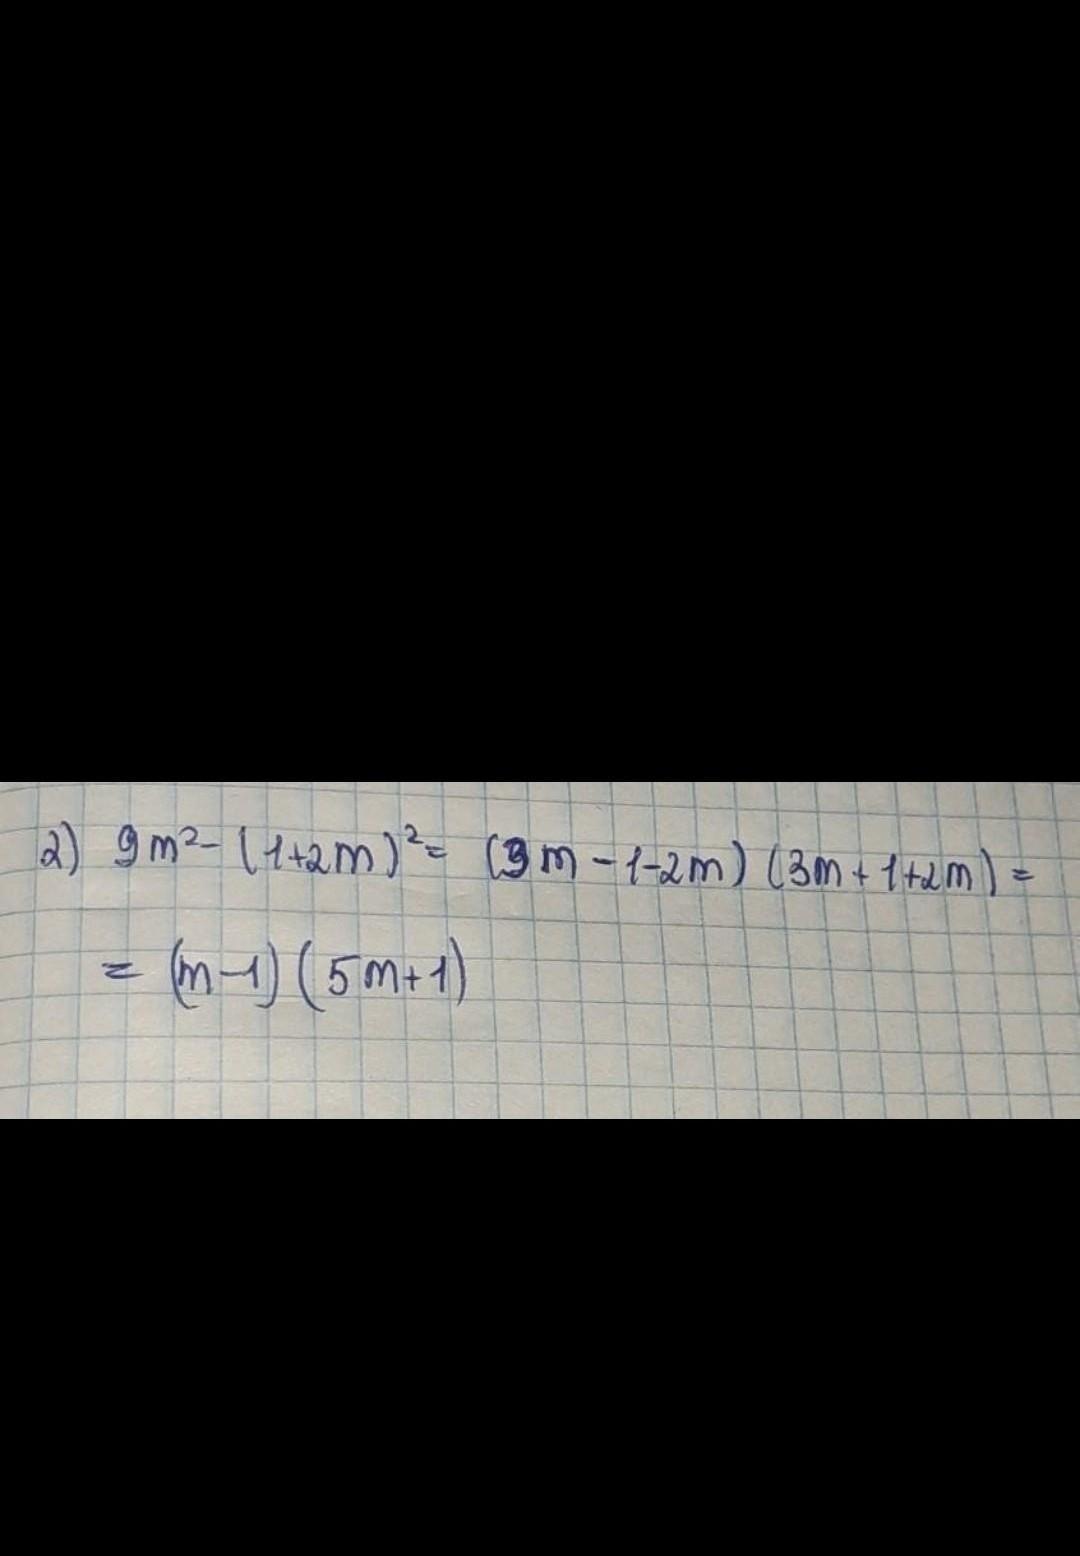 2) 9m² - (1+2m)² = (3m - 1-2m) (3m + 1+2m) =
= (m-1) (5m+1)